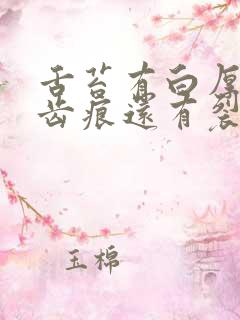 舌苔有白厚
齿痕还有裂
玉棉